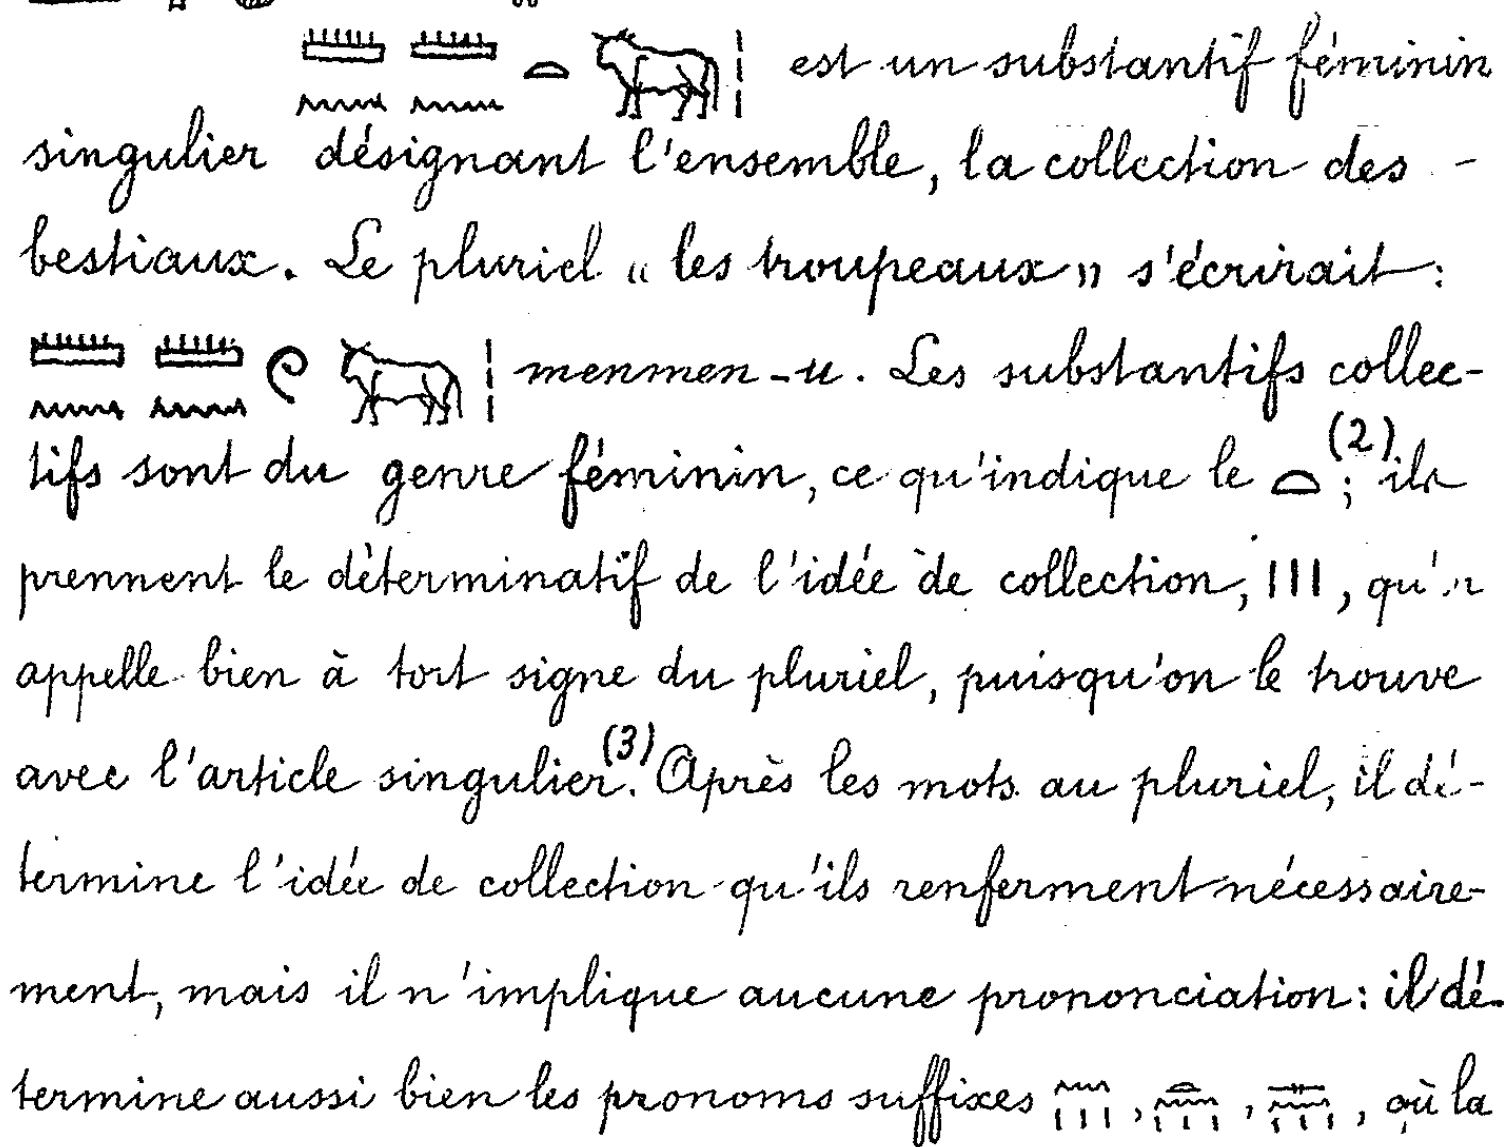 𓏠𓈖𓏠𓈖𓏏𓃒𓏥 est un substantif féminin
singulier désignant l'ensemble, la collection des -
bestiaux. Le pluriel « les troupeaux » s'écrirait :
𓏠𓈖𓏠𓈖𓏲𓃒𓏥 menmen-u. Les substantifs collec-
tifs sont du genre féminin, ce qu'indique le 𓏏 (2); ils
prennent le déterminatif de l'idée de collection, |||, 
appelle bien à tort signe du pluriel, puisqu'on le trouve
avec l'article singulier. (3) Après les mots au pluriel, il dé-
termine l'idée de collection qu'ils renferment nécessaire-
ment, mais il n'implique aucune prononciation : il dé-
termine aussi bien les pronoms suffixes 𓈖𓏥, 𓏏𓈖𓏥, 𓊃𓈖𓏥, où la